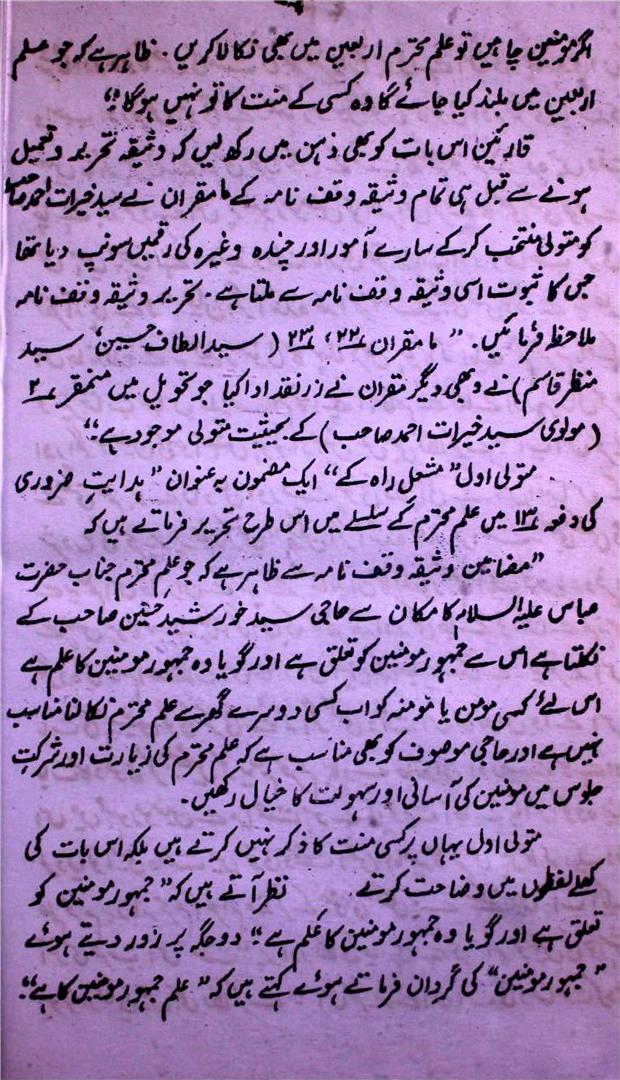 اگر مومنین چاہیں تو علم محترم اربعین میں بھی نکالا کریں۔ ظاہر ہے کہ جو علم
اربعین میں بلند کیا جائے گا وہ کسی کے منت کا تو نہیں ہوگا"
قارئین اس بات کو بھی ذہن میں رکھ لیں کہ وثیقہ تحریر و تعمیل
ہونے سے قبل ہی تمام وثیقہ وقف نامہ کے مامقران نے سید خیرات احمد صاحب
کو متولی منتخب کرکے سارے آمور اور چندہ وغیرہ کی رقمیں سونپ دیا تھا
جس کا ثبوت اسی وثیقہ وقف نامہ سے ملتا ہے۔ تحریر وثیقہ وقف نامہ
ملاحظہ فرمائیں۔ " مامقران ۲۲؎، ۲۳؎ ( سید الطاف حسین، سید
منظر قاسم) نے وبھی دیگر مقران نے زر نقد ادا کیا جو تحویل میں منمقر ۲؎
(مولوی سید خیرات احمد صاحب) کے بحیثیت متولی موجود ہے"
متولی اول "مشعل راہ کے" ایک مضمون بہ عنوان "ہدایتِ ضروری
کی دفعہ ۱۳؎ میں علم محترم کے سلسلے میں اس طرح تحریر فرماتے ہیں کہ
"مضامین وثیقہ وقف نامہ سے ظاہر ہے کہ جو علم محترم جناب حضرت
عباس علیہ السلام کا مکان سے حاجی سید خورشید حسنین صاحب کے
نکلتا ہے اس سے جمہور مومنین کو تعلق ہے اور گویا وہ جمہور مومنین کا علم ہے
اس لئے کسی مومن یا مومنہ کو اب کسی دوسرے گھر سے علم محترم نکالنا مناسب
نہیں ہے اور حاجی موصوف کو بھی مناسب ہے کہ علم محترم کی زیارت اور شرکتِ
جلوس میں مومنین کی آسانی اور سہولت کا خیال رکھیں۔
متولی اول یہاں پر کسی منت کا ذکر نہیں کرتے ہیں بلکہ اس بات کی
کھلے لفظوں میں وضاحت کرتے نظر آتے ہیں کہ "جمہور مومنین کو
تعلق ہے اور گویا وہ جمہور مومنین کا عَلم ہے" دو جگہ پر زور دیتے ہوئے
"جمہور مومنین" کی گردان فرماتے ہوئے کہتے ہیں کہ "علم جمہور مومنین کا ہے"